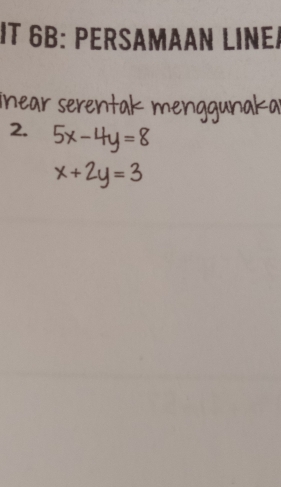 IT 6B: PERSAMAAN
inear serentak
2. 5x-4y=8
x+2y=3